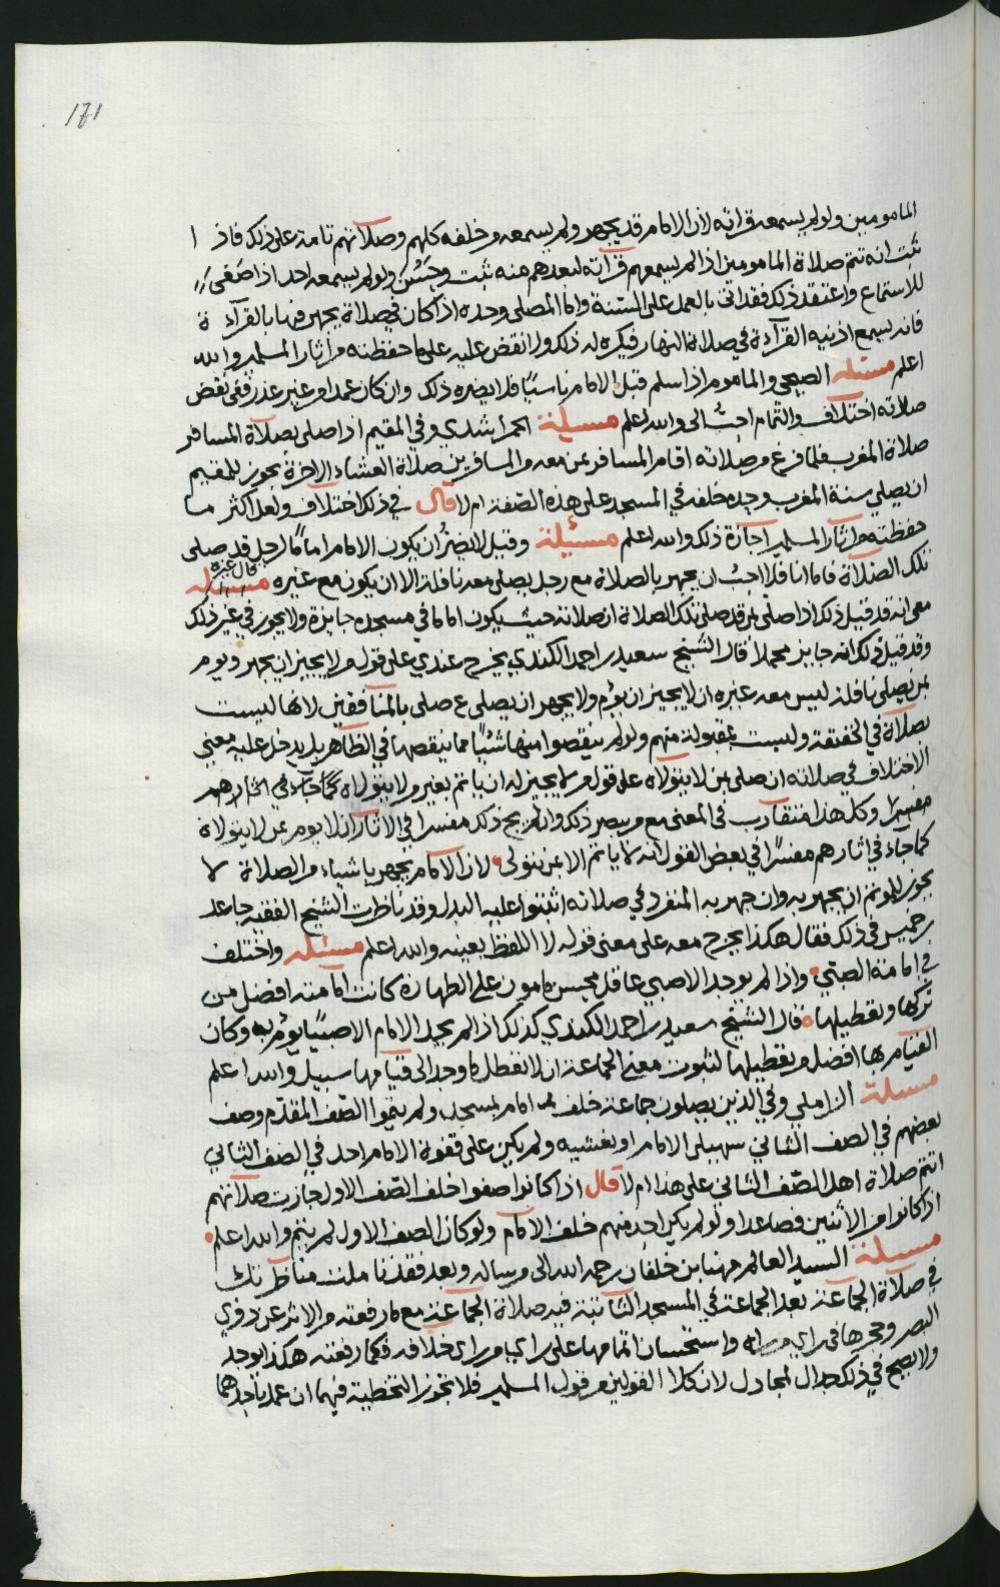 171
المامومين ولو لم يسمعه قراته لان الامام قد يجهر ولم يسمعه من خلفه كلهم وصلاتهم تامة على ذلك فاذا
ثبت انه تتم صلاة المامومين اذا لم يسمعهم قرآته لبعدهم منه ثبت وحسن ولو لم يسمعه احد اذا صغى
للاستماع واعتقد ذلك فقد اتى بالعمل على السنة واما المصلى وحده اذا كان في صلاة يجهر فيها بالقرآءة
فانه يسمع اذنيه القرآءة في صلاة النهار فيكره له ذلك ولا نقض عليه على ما حفظته من آثار المسلمين والله
اعلم مسئله الصبحي والماموم اذا سلم قبل الامام ناسيًا فلا يضره ذلك وان كان عمدا من غير عذر ففي نقض
صلاته اختلاف والتمام احبّ الى والله اعلم مسيلة احمد شدي وفي المقيم اذا صلى بصلاة المسافر
صلاة المغرب فلما فرغ من صلاته اقام المسافر بمن معه من المسافرين صلاة العشاء الاخرة يجوز للمقيم
ان يصلي سنة المغرب وحده خلفه في المسجد على هذه الصفة ام لا قال في ذلك اختلاف ولعل اكثر ما
حفظته من آثار المسلمين اجازة ذلك والله اعلم مسئيلة وقيل لا يجوز ان يكون الامام امامًا لرجل قد صلى
تلك الصلاة فاما انا فلا احبّ ان يجهر بالصلاة مع رجل يصلى معه نافلة الا ان يكون مع غيره مسئله قال غيره
معي انه قد قيل ذلك اذا صلى بمن قد صلى تلك الصلاة ان صلاته حيث يكون اماما في مسجده جايزة ولا يجوز في غير ذلك
وقد قيل ذلك انه جايز مجملا قال الشيخ سعيد بن احمد الكندي يخرج عندي على قول من لا يجيز ان يجهر ويوم
بمن يصلى نافلة ليس معه غيره ان لا يجيز ان يؤم ولا يجهر ان يصلى ع صلى بالمنافقين لانها ليست
بصلاة في الحقيقة وليست بمقبولة منهم ولو لم ينقصوا منها شئيًا مما ينقصها في الظاهر بل يدخل عليه معنى
الاختلاف في صلاته ان صلى بمن لا يتولاه على قول من لا يجيز له ان ياتم بغير من لا يتولاه كما جاء في اثارهم
مفسرا وكل هذا متقارب في المعنى مع من يبصر ذلك وان لم يجئ ذلك مفسرا في الاثار ان لا يوم بمن لا يتولاه
كما جاء في اثارهم مفسرًا في بعض القول انه لا ياتم الا بمن يتولى لان الامام يجهر باشياء من الصلاة لا
يجوز للموتم ان يجهر به وان جهر به المنفرد في صلاته اثبتوا عليه البدل وقد ناظرت الشيخ الفقيه جاعد
بن خميس في ذلك فقال هكذا يخرج معه على معنى قوله لا اللفظ بعينه والله اعلم مسئله واختلف
في امامة الصبي واذا لم يوجد الا صبي عاقل محسن مامون على الطهارة كانت امامته افضل من
تركها وتعطيلها قال الشيخ سعيد بن احمد الكندي كذلك اذا لم يجد الامام الا صبيًا يؤم به وكان
القيام بها افضل من تعطيلها لثبوت معنى الجماعة ان لا تعطل ما وجد الى قيامها سبيل والله اعلم
مسئلة الزاملي وفي الذين يصلون جماعة خلف امام المسجد ولم يتموا الصّف المقدّم وصف
بعضهم في الصف الثاني سهيلى الامام او نعشيه ولم يكن على قفوة الامام احد في الصف الثاني
اتتم صلاة اهل الصّف الثاني على هذا ام لا قال اذا كانوا صفوا خلف الصّف الاول جازت صلاتهم
اذا كانوا من الاثنين فصاعدا ولو لم يكن احد منهم خلف الامام ولو كان الصف الاول لم يتم والله اعلم
مسيلة السيد العالم مهنا بن خلفان رحمه الله الى من ساله وبعد فقد تاملت مناظرتك
في صلاة الجماعة بعد الجماعة في المسجد الثابتة فيه صلاة الجماعة مع ما رفعته من الاثر عن ذوي
البصر وحجرها في راي من راه واستحسان اتمامها على راي من راى خلافه فكما رفعته هكذا يوجد
ولا يصح في ذلك جدال المجادل لان كلا القولين من قول المسلمين فلا تجوز التخطية فيهما ان عمل باحدهما